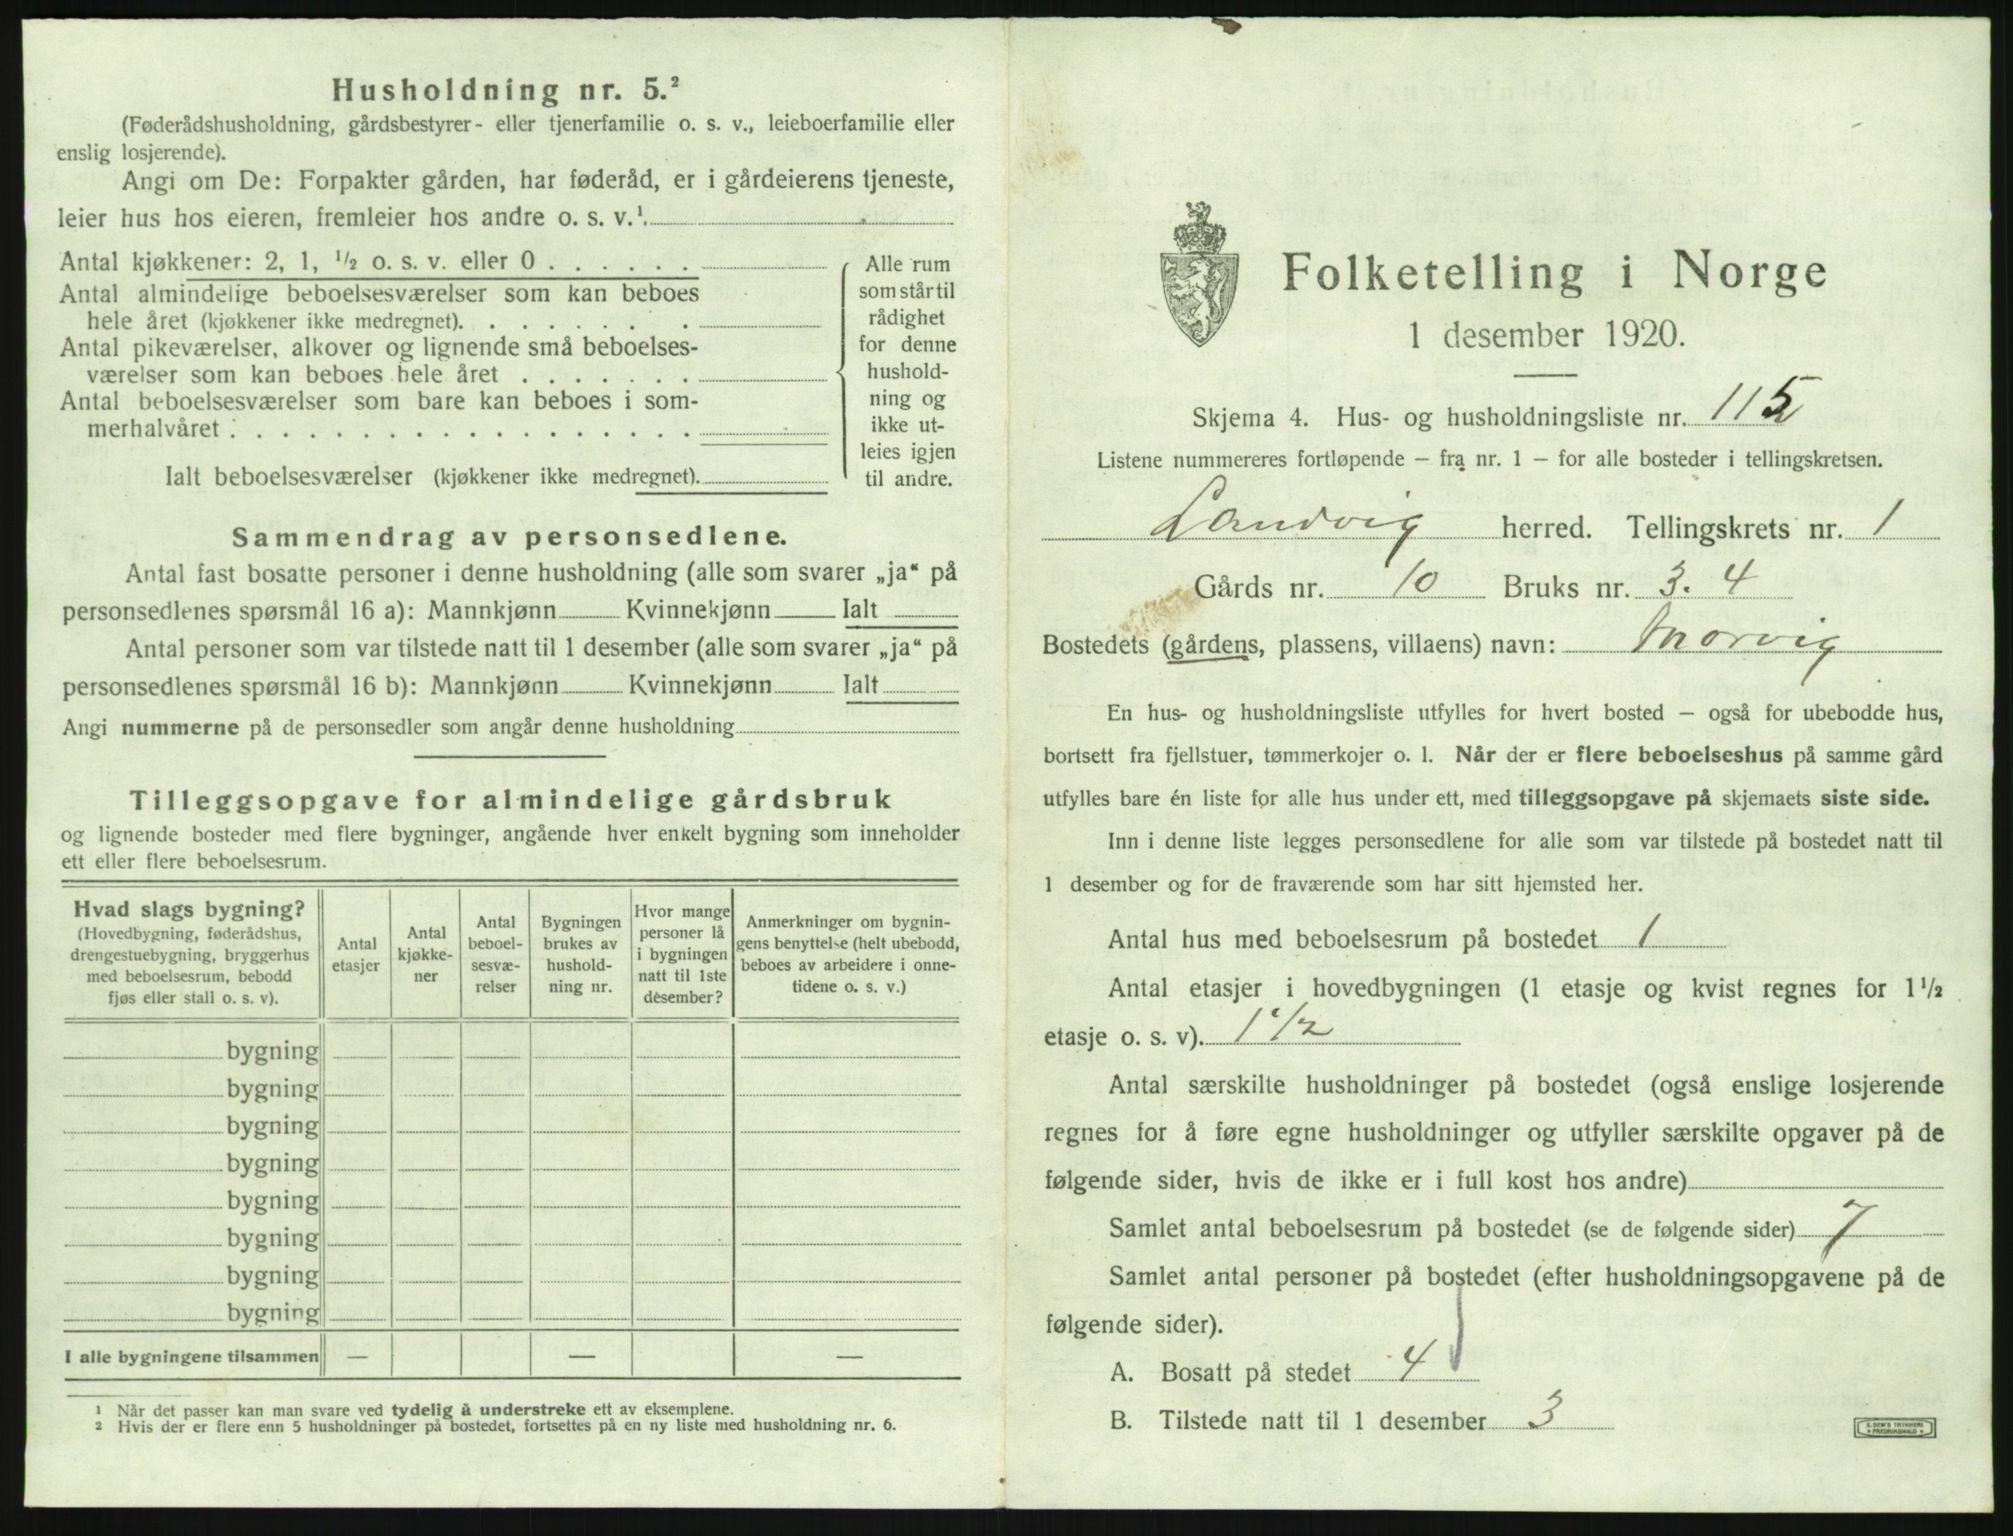 Husholdning nr. 5.²
(Føderådshusholdning, gårdsbestyrer- eller tjenerfamilie o. s. v., leieboerfamilie eller
enslig losjerende).
Angi om De: Forpakter gården, har føderåd, er i gårdeierens tjeneste,
leier hus hos eieren, fremleier hos andre o. s. v.¹
Antal kjøkkener: 2, 1, ½ o. s. v. eller 0 . . . . . .
Antal almindelige beboelsesværelser som kan beboes
hele året (kjøkkener ikke medregnet). . . . . . . .
Antal pikeværelser, alkover og lignende små beboelses-
værelser som kan beboes hele året . . . . . . .
Antal beboelsesværelser som bare kan beboes i som-
merhalvåret . . . . . . . . . . . . . . . . . .
Ialt beboelsesværelser (kjøkkener ikke medregnet).
Alle rum
som står til
rådighet
for denne
hushold-
ning og
ikke ut-
leies igjen
til andre.
Sammendrag av personsedlene.
Antal fast bosatte personer i denne husholdning (alle som svarer „ja“ på
personsedlenes spørsmål 16 a): Mannkjønn Kvinnekjønn Ialt
Antal personer som var tilstede natt til 1 desember (alle som svarer „ja“ på
personsedlenes spørsmål 16 b): Mannkjønn Kvinnekjønn Ialt
Angi nummerne på de personsedler som angår denne husholdning
Tilleggsopgave for almindelige gårdsbruk
og lignende bosteder med flere bygninger, angående hver enkelt bygning som inneholder
ett eller flere beboelsesrum.
Hvad slags bygning?
(Hovedbygning, føderådshus,
drengestuebygning, bryggerhus
med beboelsesrum, bebodd
fjøs eller stall o. s. v).
Antal
etasjer
Antal
kjøkke-
ner
Antal
beboel-
sesvæ-
relser
Bygningen
brukes av
hushold-
ning nr.
Hvor mange
personer lå
i bygningen
natt til 1ste
desember?
Anmerkninger om bygnin-
gens benyttelse (helt ubebodd,
beboes av arbeidere i onne-
tidene o. s. v.)
bygning
bygning
bygning
bygning
bygning
bygning
bygning
bygning
I alle bygningene tilsammen — — —
¹ Når det passer kan man svare ved tydelig å understreke ett av eksemplene.
² Hvis der er flere enn 5 husholdninger på bostedet, fortsettes på en ny liste med husholdning nr. 6.
Folketelling i Norge
1 desember 1920.
Skjema 4. Hus- og husholdningsliste nr. 115
Listene nummereres fortløpende – fra nr. 1 – for alle bosteder i tellingskretsen.
Landvig herred. Tellingskrets nr. 1
Gårds nr. 10 Bruks nr. 3. 4
Bostedets (gårdens, plassens, villaens) navn: Morvig
En hus- og husholdningsliste utfylles for hvert bosted – også for ubebodde hus,
bortsett fra fjellstuer, tømmerkojer o. l. Når der er flere beboelseshus på samme gård
utfylles bare én liste for alle hus under ett, med tilleggsopgave på skjemaets siste side.
Inn i denne liste legges personsedlene for alle som var tilstede på bostedet natt til
1 desember og for de fraværende som har sitt hjemsted her.
Antal hus med beboelsesrum på bostedet 1
Antal etasjer i hovedbygningen (1 etasje og kvist regnes for 1½
etasje o. s. v). 1½
Antal særskilte husholdninger på bostedet (også enslige losjerende
regnes for å føre egne husholdninger og utfyller særskilte opgaver på de
følgende sider, hvis de ikke er i full kost hos andre)
Samlet antal beboelsesrum på bostedet (se de følgende sider) 7
Samlet antal personer på bostedet (efter husholdningsopgavene på de
følgende sider).
A. Bosatt på stedet 4
B. Tilstede natt til 1 desember 3
E. SEM'S TRYKKERI
• FREDRIKSHALD •